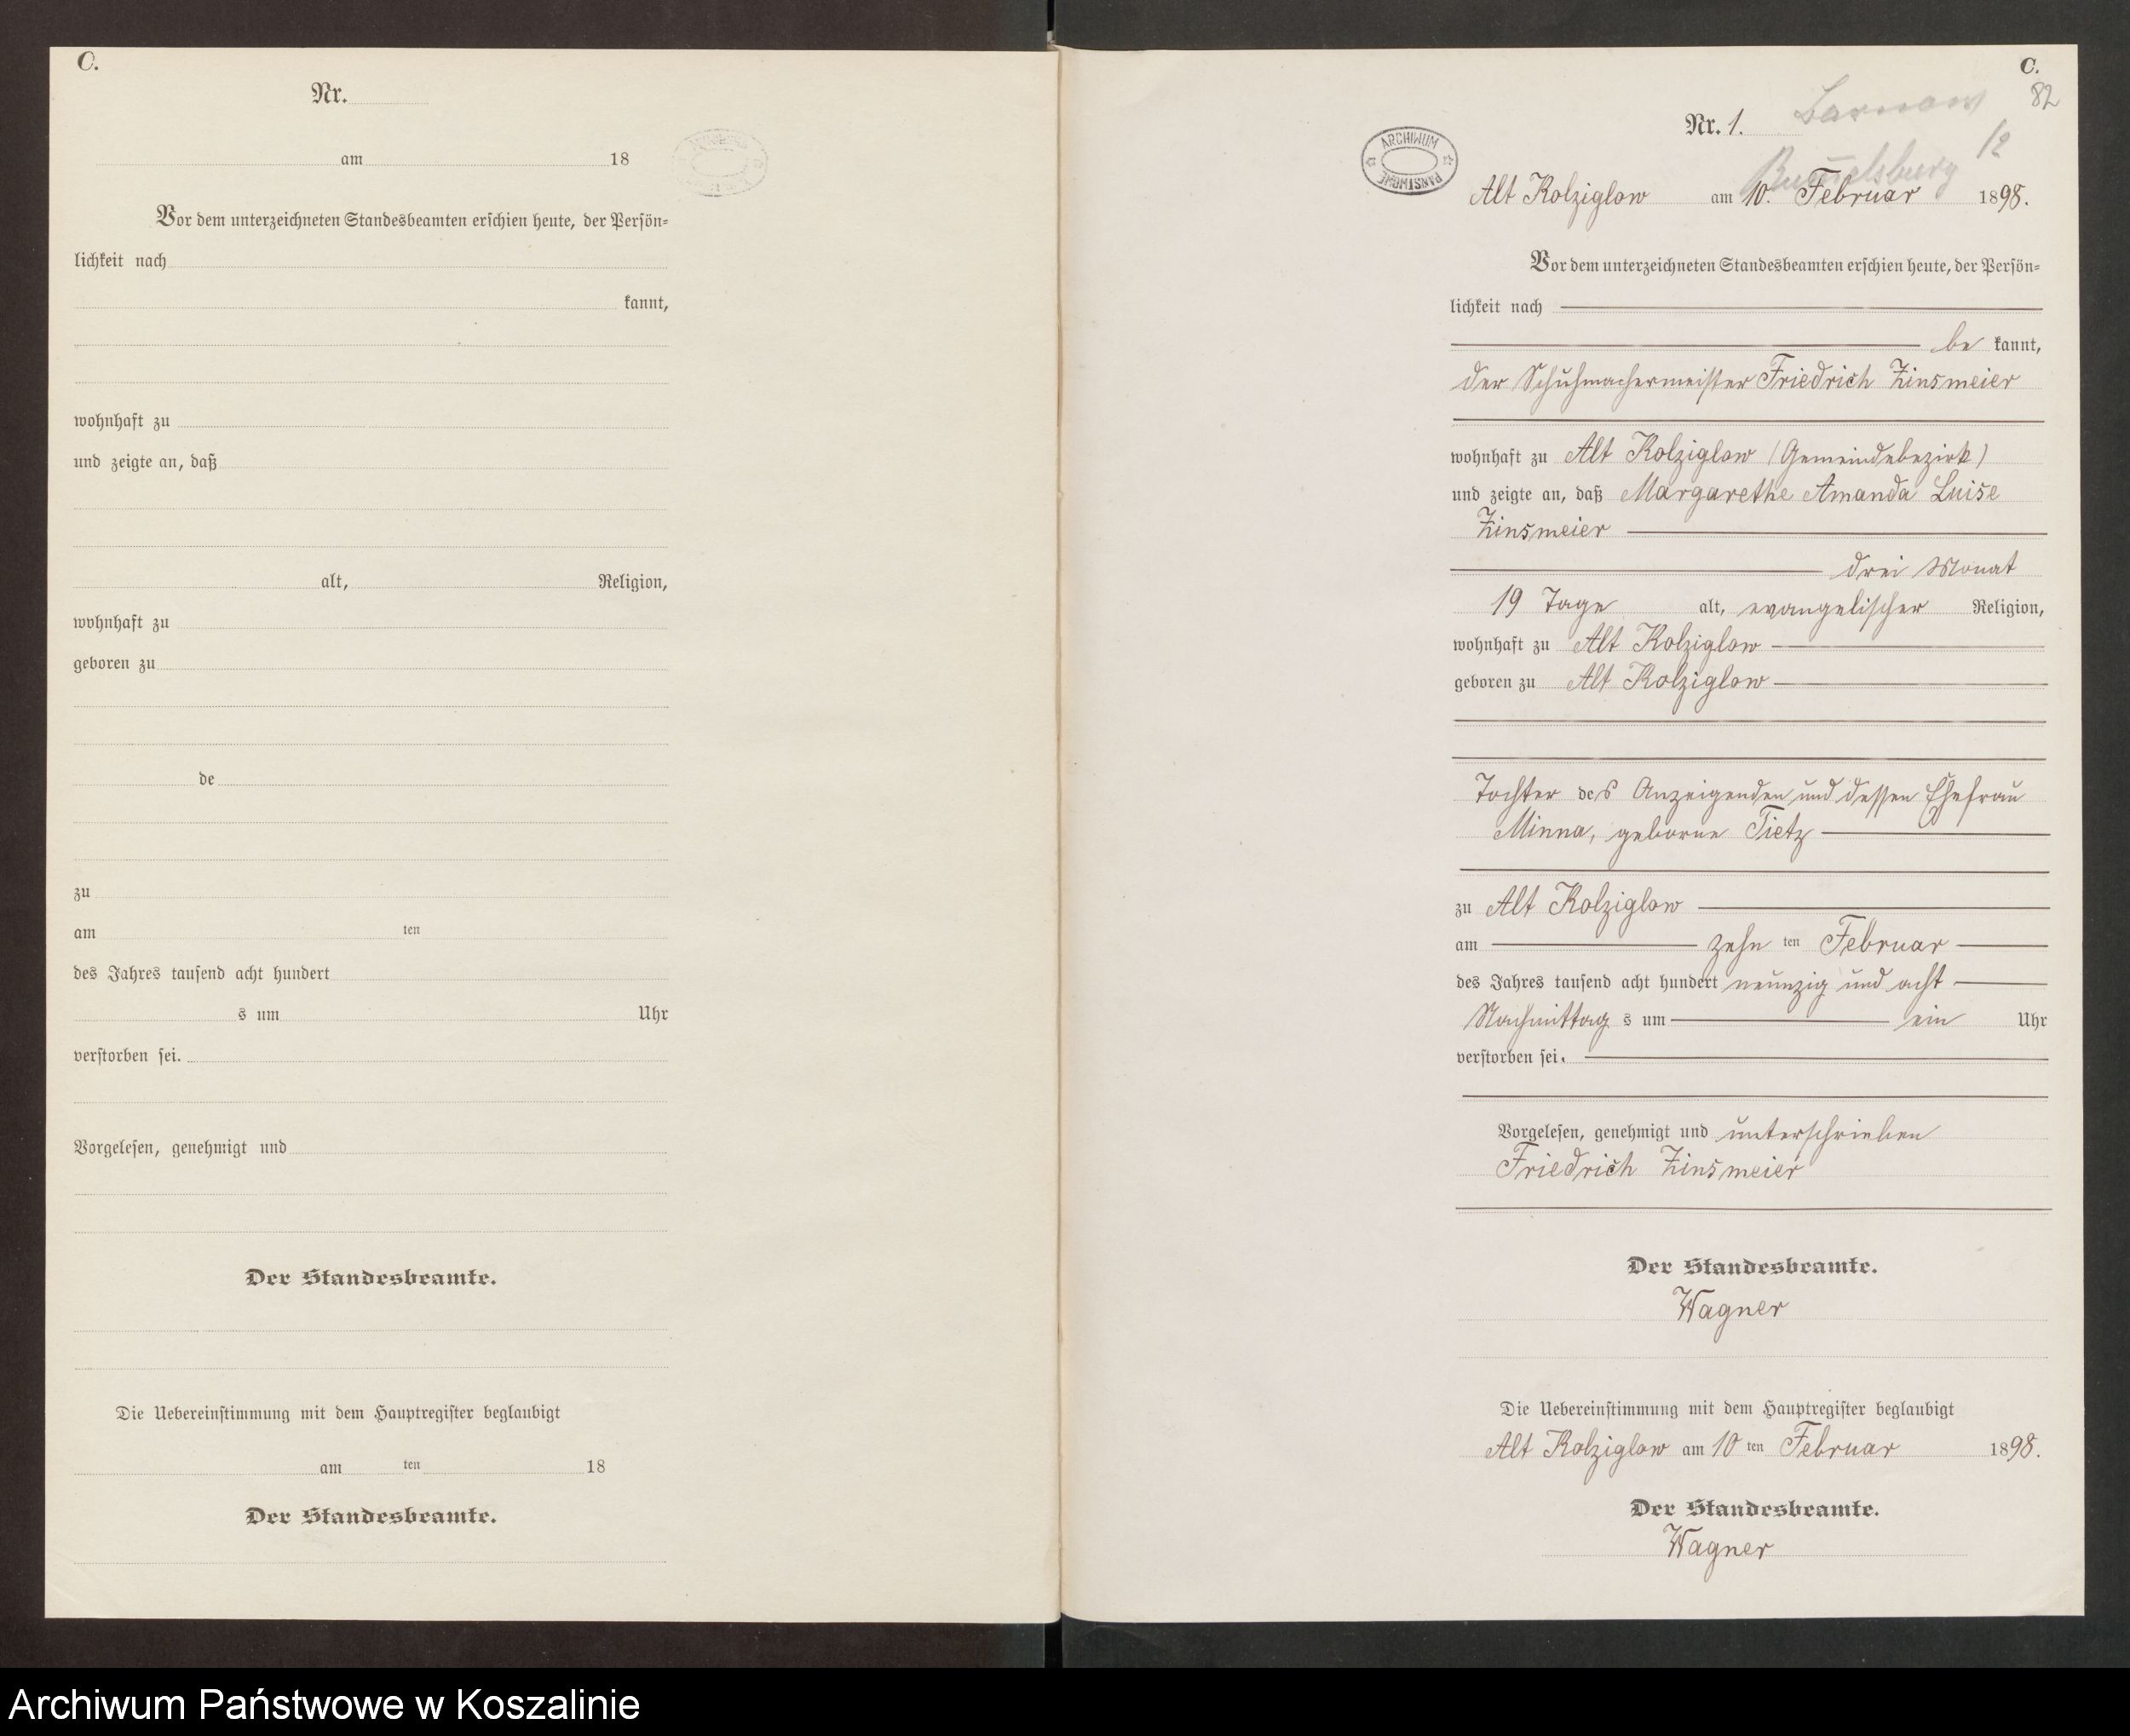 C.
Nr.
am 18
Vor dem unterzeichneten Standesbeamten erschien heute, der Persön-
lichkeit nach
kannt,
wohnhaft zu
und zeigte an, daß
alt, Religion,
wohnhaft zu
geboren zu
de
zu
am ten
des Jahres tausend acht hundert
s um Uhr
verstorben sei.
Vorgelesen, genehmigt und
Der Standesbeamte.
Die Uebereinstimmung mit dem Hauptregister beglaubigt
am ten 18
Der Standesbeamte.
C.
82
Nr. 1.
12
Rummelsburg
ARCHIWUM PAŃSTWOWE
Alt Kolziglow am 10. Februar 1898.
Vor dem unterzeichneten Standesbeamten erschien heute, der Persön-
lichkeit nach
be kannt,
der Schuhmachermeister Friedrich Zinsmeier
wohnhaft zu Alt Kolziglow (Gemeindebezirk)
und zeigte an, daß Margarethe Amanda Luise
Zinsmeier
drei Monat
19 Tage alt, evangelischer Religion,
wohnhaft zu Alt Kolziglow
geboren zu Alt Kolziglow
Tochter des Anzeigenden und dessen Ehefrau
Minna, geborne Tietz
zu Alt Kolziglow
am zehn ten Februar
des Jahres tausend acht hundert neunzig und acht
Nachmittag s um ein Uhr
verstorben sei.
Vorgelesen, genehmigt und unterschrieben
Friedrich Zinsmeier
Der Standesbeamte.
Wagner
Die Uebereinstimmung mit dem Hauptregister beglaubigt
Alt Kolziglow am 10 ten Februar 1898.
Der Standesbeamte.
Wagner
Archiwum Państwowe w Koszalinie